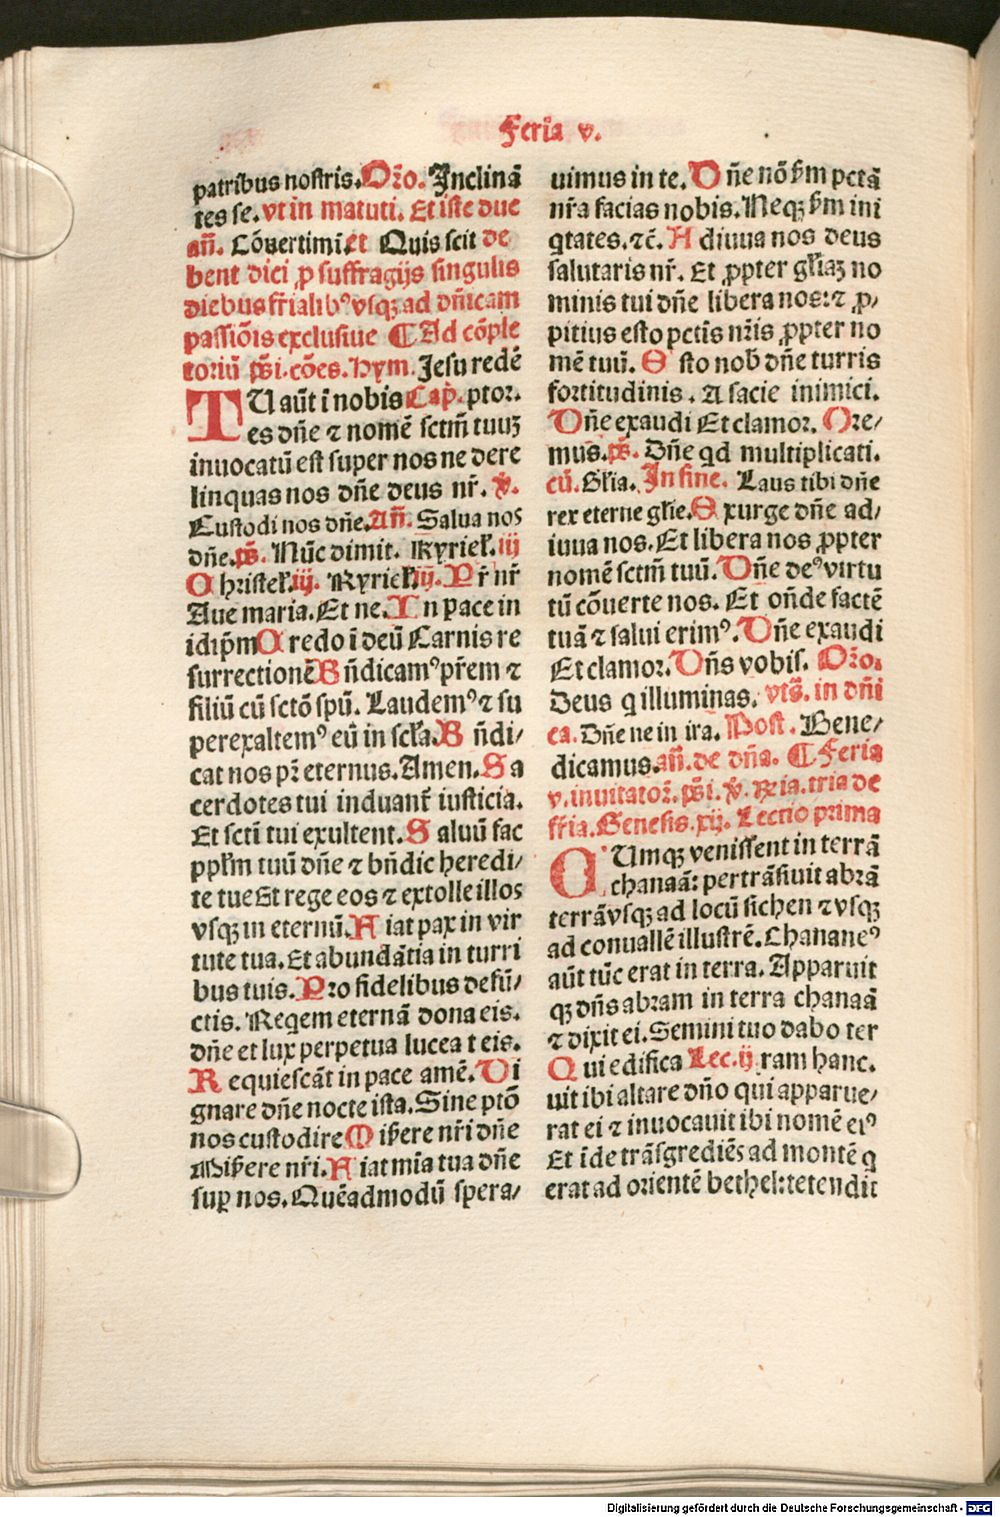 Feria v.
patribus nostris. Orō. Inclinā
tes se. vt in matuti. Et iste due
añ. Cōuertimi. et Quis scit de
bent dici ꝑ suffragijs singulis
diebus fr̄ialibꝰ vsqꝫ ad dñicam
passiōis exclusiue ¶ Ad cōple
toriū ps̄i. cōes. Hym. Jesu redē
TU aūt ī nobis Cap̄. ptor.
es dñe ⁊ nomē sctm̄ tuuꝫ
inuocatū est super nos ne dere
linquas nos dñe deus nr̄. v̄.
Custodi nos dñe. Añ. Salua nos
dñe. ps̄. Nūc dimit. Kyriel̄. iij
Christel̄. iij. Kyriel̄. iij. Pr̄ nr̄
Aue maria. Et ne. In pace in
idip̄m Credo ī deū Carnis re
surrectionē Bñdicamꝰ pr̄em ⁊
filiū cū sctō spū. Laudemꝰ ⁊ su
perexaltemꝰ eū in scl̄a. Bñdi⸗
cat nos pr̄ eternus. Amen. Sa
cerdotes tui induant̄ iusticia.
Et sctī tui exultent. Saluū fac
ppl̄m tuū dñe ⁊ bñdic heredi⸗
te tue Et rege eos ⁊ extolle illos
vsqꝫ in eternū. Fiat pax in vir
tute tua. Et abundātia in turri
bus tuis. Pro fidelibus defū⸗
ctis. Requem eternā dona eis.
dñe et lux perpetua lucea t eis.
Requiescāt in pace amē. Di
gnare dñe nocte ista. Sine pctō
nos custodire Misere nr̄i dñe
Misere nr̄i. Fiat mīa tua dñe
suꝑ nos. Quēadmodū spera⸗
uimus in te. Dñe nō sm̄ pctā
nr̄a facias nobis. Neqꝫ sm̄ ini
qtates. ⁊c̄. Adiuua nos deus
salutaris nr̄. Et ꝓpter gl̄iaꝫ no
minis tui dñe libera nos: ⁊ ꝓ⸗
pitius esto pctīs nr̄is ꝓpter no
mē tuū. Esto nob̄ dñe turris
fortitudinis. A facie inimici.
Dñe exaudi Et clamor. Ore⸗
mus. ps̄. Dñe qd multiplicati.
cū. Gl̄ia. In fine. Laus tibi dñe
rex eterne gl̄ie. Exurge dñe ad⸗
iuua nos. Et libera nos ꝓpter
nomē sctm̄ tuū. Dñe deꝰ virtu
tū cōuerte nos. Et oñde factē
tuā ⁊ salui erimꝰ. Dñe exaudi
Et clamor. Dñs vobis. Orō.
Deus q illuminas. vts̄. in dñi
ca. Dñe ne in ira. Post. Bene⸗
dicamus. añ. de dña. ¶ Feria
v. inuitator. ps̄i. v̄. Rr̄ia. tria de
fr̄ia. Genesis. xij. Lectio prima
CUmqꝫ venissent in terrā
chanaā: pertrāsiuit abrā
terrā vsqꝫ ad locū sichen ⁊ vsqꝫ
ad conuallē illustrē. Chananeꝰ
aūt tūc erat in terra. Apparuit
qꝫ dñs abram in terra chanaā
⁊ dixit ei. Semini tuo dabo ter
Qui edifica Lec. ij ram hanc.
uit ibi altare dño qui apparue⸗
rat ei ⁊ inuocauit ibi nomē eiꝰ
Et īde trāsgrediēs ad montē q
erat ad orientē bethel: tetendit
Digitalisierung gefördert durch die Deutsche Forschungsgemeinschaft - DFG